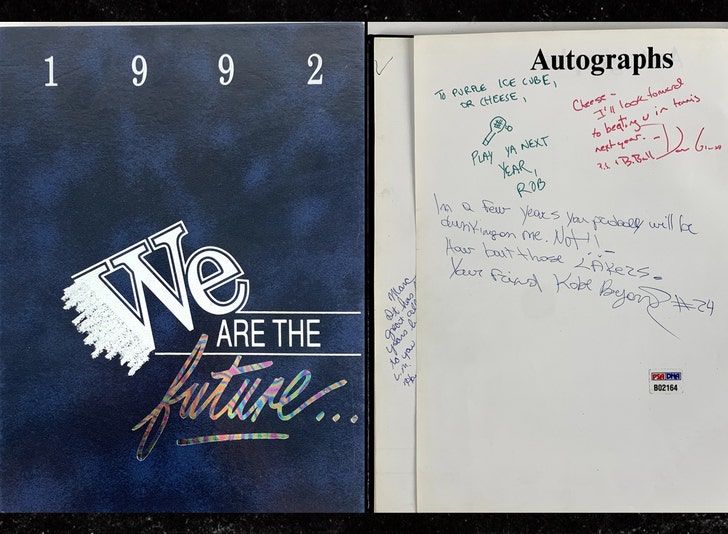 1 9 9 2
We
ARE THE
future...
Autographs
TO PURPLE ICE CUBE,
OR CHEESE,
PLAY YA NEXT
YEAR,
ROB
Cheese -
I'll look forward
to beating u in tennis
next year. -
& B.Ball
In a Few Years You probably will be
dunking on me. Not!!
How bout those LAKERS.
Your Friend Kobe Bryant #24
PSA DNA
B02164
Marc
great
to
you